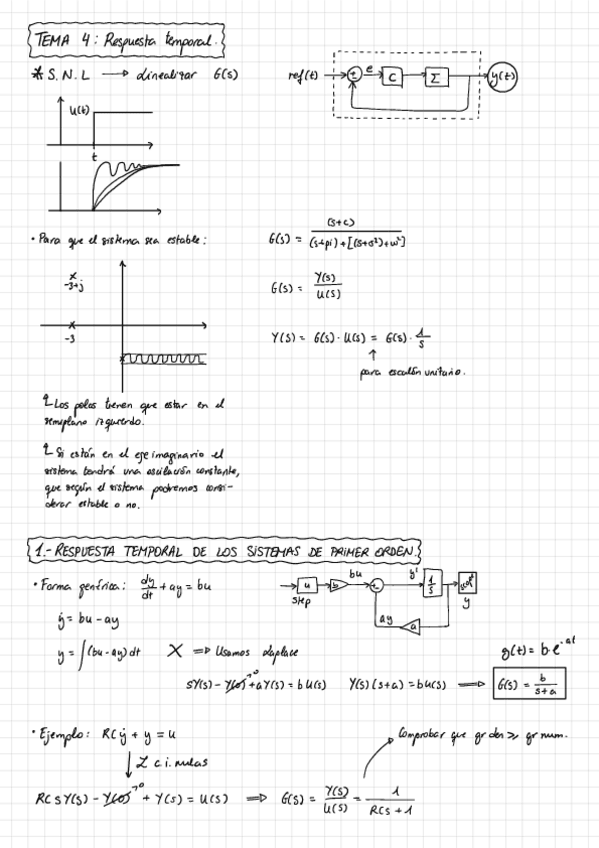 TEMA 4: Respuesta temporal.
* S.N.L → Linealizar G(s)
ref(t) + e C Σ y(t)
U(t)
t
• Para que el sistema sea estable:
G(s) = (s+c) / (s+pi)+[(s+σ²)+ω²]
-3+j
G(s) = Y(s) / U(s)
-3
Y(s) = G(s) · U(s) = G(s) · 1/s
↑
para escalón unitario.
Los polos tienen que estar en el
semiplano izquierdo.
Si están en el eje imaginario el
sistema tendrá una oscilación constante,
que según el sistema podremos consi-
derar estable o no.
1.- RESPUESTA TEMPORAL DE LOS SISTEMAS DE PRIMER ORDEN.
• Forma genérica: dy/dt + ay = bu
u bu y' 1/s
step ay a y
ẏ = bu - ay
y = ∫(bu - ay) dt X ⇒ Usamos Laplace
g(t) = b·e^-at
sY(s) - Y(0)→0 + aY(s) = bU(s) Y(s)(s+a) = bU(s) ⇒ G(s) = b / s+a
• Ejemplo: RCẏ + y = u
Comprobar que gr den ≥ gr num.
↓ L c.i. nulas
RCsY(s) - Y(0)→0 + Y(s) = U(s) ⇒ G(s) = Y(s)/U(s) = 1 / RCs + 1